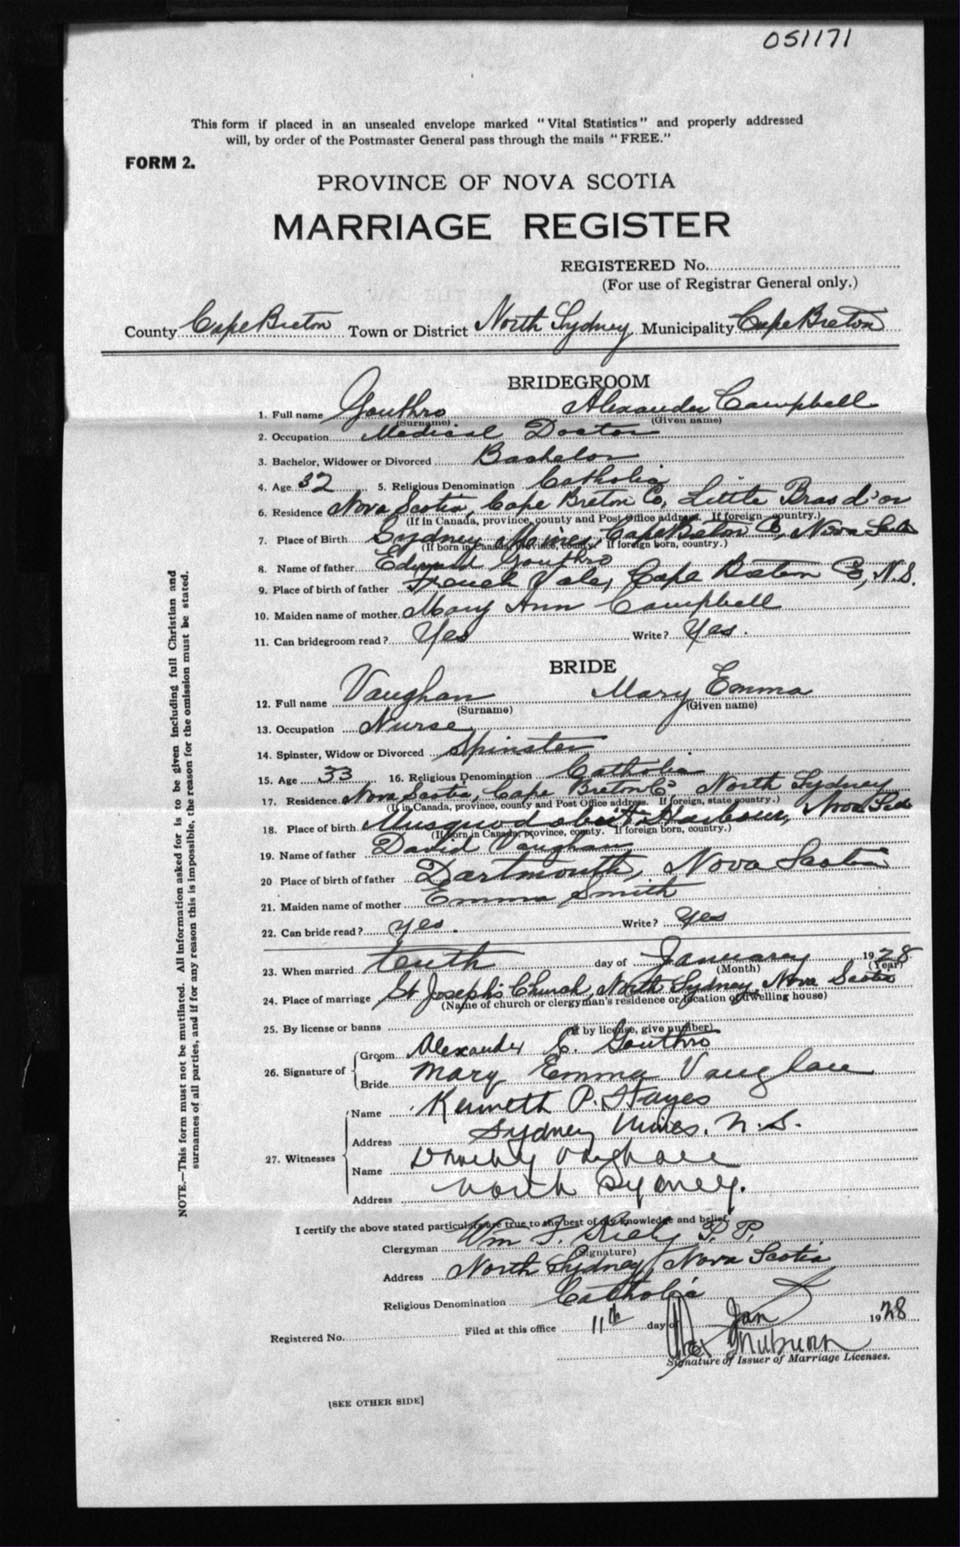 051171
This form if placed in an unsealed envelope marked "Vital Statistics" and properly addressed
will, by order of the Postmaster General pass through the mails "FREE."
FORM 2.
PROVINCE OF NOVA SCOTIA
MARRIAGE REGISTER
REGISTERED No.
(For use of Registrar General only.)
County Cape Breton Town or District North Sydney Municipality Cape Breton
BRIDEGROOM
1. Full name Gouthro Alexander Campbell
(Surname) (Given name)
2. Occupation Medical Doctor
3. Bachelor, Widower or Divorced Bachelor
4. Age 32 5. Religious Denomination Catholic
6. Residence Nova Scotia, Cape Breton Co, Little Bras d'or
(If in Canada, province, county and Post Office address. If foreign country.)
7. Place of Birth Sydney Mines, Cape Breton Co, Nova Scotia
(If born in Canada, province, county. If foreign born, country.)
8. Name of father Edward Gouthro
9. Place of birth of father French Vale, Cape Breton Co, N.S.
10. Maiden name of mother Mary Ann Campbell
11. Can bridegroom read? Yes Write? Yes.
BRIDE
12. Full name Vaughan Mary Emma
(Surname) (Given name)
13. Occupation Nurse
14. Spinster, Widow or Divorced Spinster
15. Age 33 16. Religious Denomination Catholic
17. Residence Nova Scotia, Cape Breton Co North Sydney
(If in Canada, province, county and Post Office address. If foreign, state country.)
18. Place of birth Musquodoboit Harbour, Nova Scotia
(If born in Canada, province, county. If foreign born, country.)
19. Name of father David Vaughan
20 Place of birth of father Dartmouth, Nova Scotia
21. Maiden name of mother Emma Smith
22. Can bride read? yes. Write? yes
23. When married tenth day of January 1928
(Month) (Year)
24. Place of marriage St Joseph's Church, North Sydney, Nova Scotia
(Name of church or clergyman's residence or location of dwelling house)
25. By license or banns
(If by license, give number)
26. Signature of
Groom Alexander C. Gouthro
Bride Mary Emma Vaughan
27. Witnesses
Name Kenneth P. Hayes
Address Sydney Mines. N.S.
Name Dorothy Vaughan
Address North Sydney.
I certify the above stated particulars are true to the best of my knowledge and belief.
Clergyman Wm F. Kiely P.P.
(Signature)
Address North Sydney, Nova Scotia
Religious Denomination Catholic
Registered No. Filed at this office 11th day of Jan 1928
Signature of Issuer of Marriage Licenses.
[SEE OTHER SIDE]
NOTE.—This form must not be mutilated. All information asked for is to be given including full Christian and
surnames of all parties, and if for any reason this is impossible, the reason for the omission must be stated.